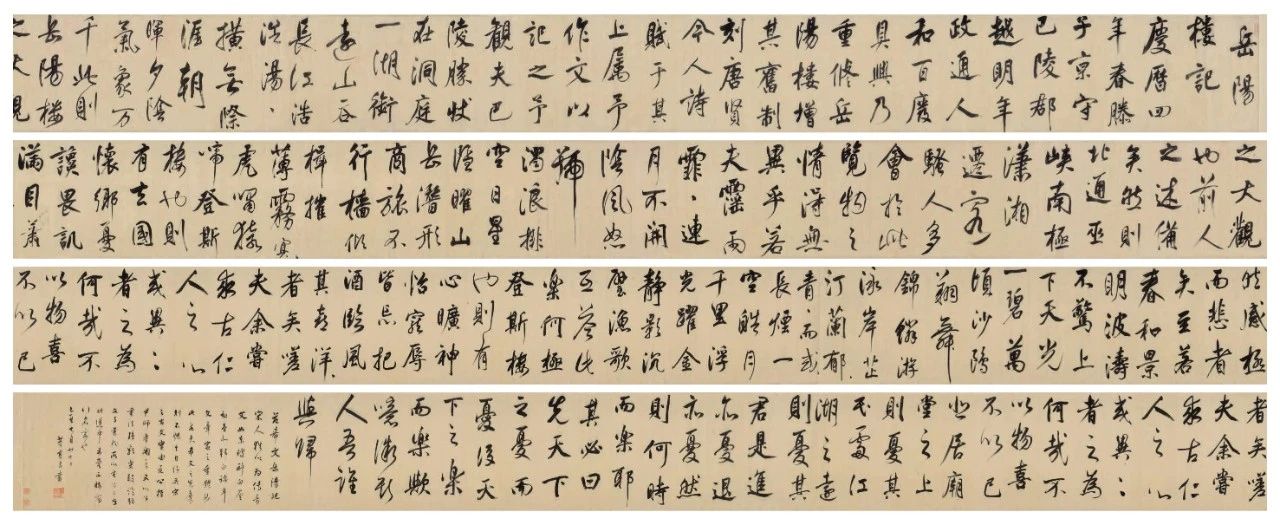 岳陽
樓記
慶曆四
年春滕
子京守
巴陵郡
越明年
政通人
和百廢
具興乃
重修岳
陽樓增
其舊制
刻唐賢
今人詩
賦于其
上屬予
作文以
記之予
觀夫巴
陵勝狀
在洞庭
一湖銜
遠山吞
長江浩
浩湯、
橫無際
涯朝
暉夕陰
氣象万
千此則
岳陽樓
之大觀
之大觀
也前人
之述備
矣然則
北通巫
峽南極
瀟湘
遷客
騷人多
會於此
覽物之
情得無
異乎若
夫霪雨
霏、連
月不開
陰風怒
號
濁浪排
空日星
隱曜山
岳潛形
商旅不
行檣傾
楫摧
薄霧冥
虎嘯猿
啼登斯
樓也則
有去國
懷鄉憂
讒畏譏
滿目蕭
然感極
而悲者
矣至若
春和景
明波濤
不驚上
下天光
一碧萬
頃沙鷗
翔舞
錦鱗游
泳岸芷
汀蘭郁、
青、而或
長煙一
空皓月
千里浮
光躍金
靜影沉
璧漁歌
互答此
樂何極
登斯樓
也則有
心曠神
怡寵辱
皆忘把
酒臨風
其喜洋、
者矣嗟
夫余嘗
求古仁
人之心
或異二
者之為
何哉不
以物喜
不以己
者矣嗟
夫余嘗
求古仁
人之心
或異二
者之為
何哉不
以物喜
不以己
悲居廟
堂之上
則憂其
民處江
湖之遠
則憂其
君是進
亦憂退
亦憂然
則何時
而樂耶
其必曰
先天下
之憂而
憂後天
下之樂
而樂歟
噫微斯
人吾誰
與歸